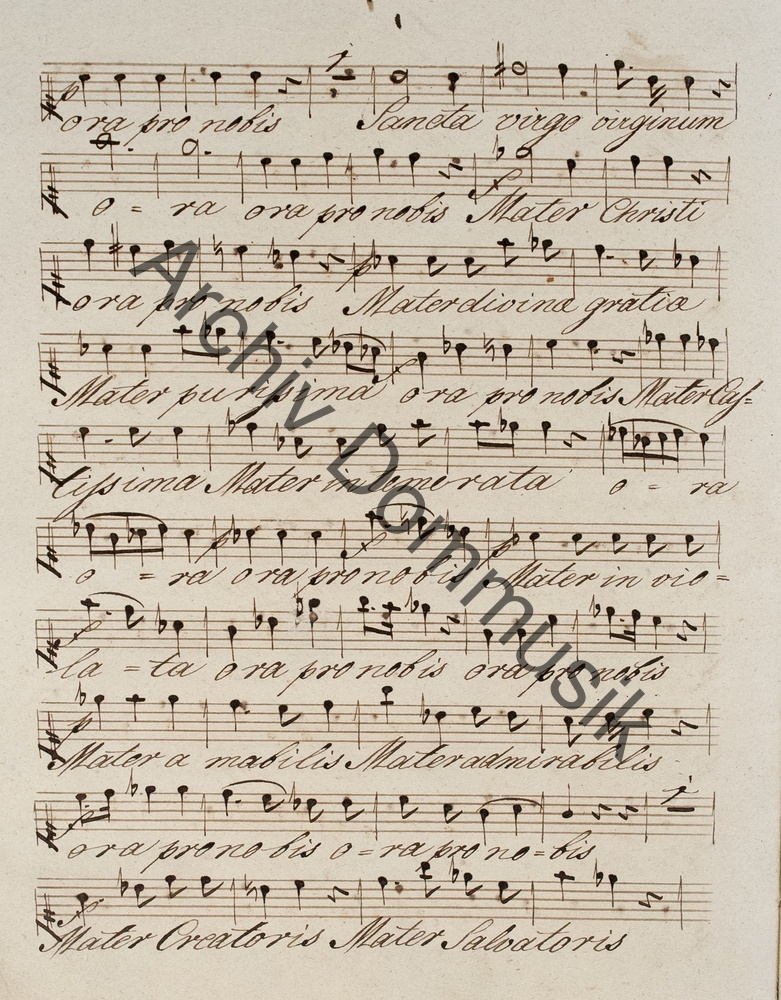 ora pro nobis Sancta virgo virginum
o = ra ora pro nobis Mater Christi
ora pro nobis Mater divina gratia
Mater purissima ora pro nobis Mater Cas=
tissima Mater in temerata o = ra
o = ra ora pro nobis Mater in vio=
la = ta ora pro nobis ora pro nobis
Mater a mabilis Mater admirabilis
ora pro nobis o = ra pro no = bis
Mater Creatoris Mater Salvatoris
Archiv Dommusik